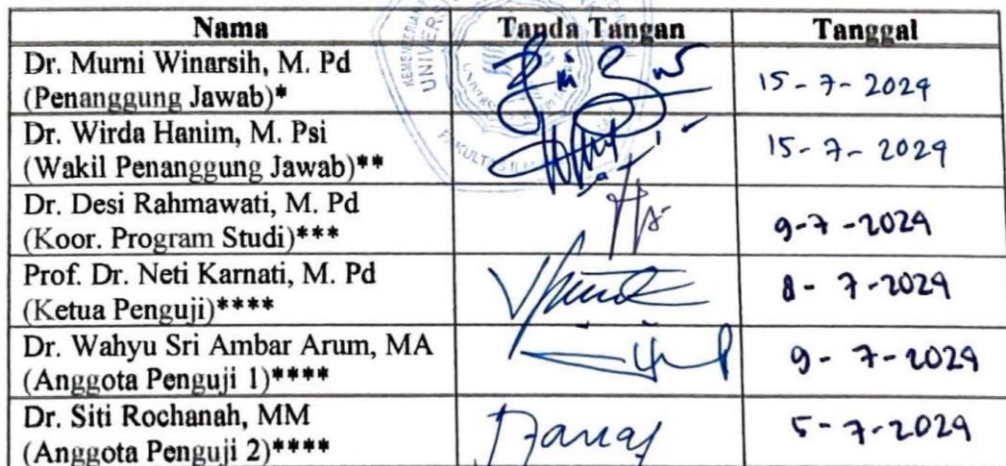 Nama Tanda Tangan Tanggal
Dr. Murni Winarsih, M. Pd
(Penanggung Jawab)* 15-7-2024
Dr. Wirda Hanim, M. Psi
(Wakil Penanggung Jawab)** 15-7-2024
Dr. Desi Rahmawati, M. Pd
(Koor. Program Studi)*** 9-7-2024
Prof. Dr. Neti Karnati, M. Pd
(Ketua Penguji)**** 8-7-2024
Dr. Wahyu Sri Ambar Arum, MA
(Anggota Penguji 1)**** 9-7-2024
Dr. Siti Rochanah, MM
(Anggota Penguji 2)**** 5-7-2024